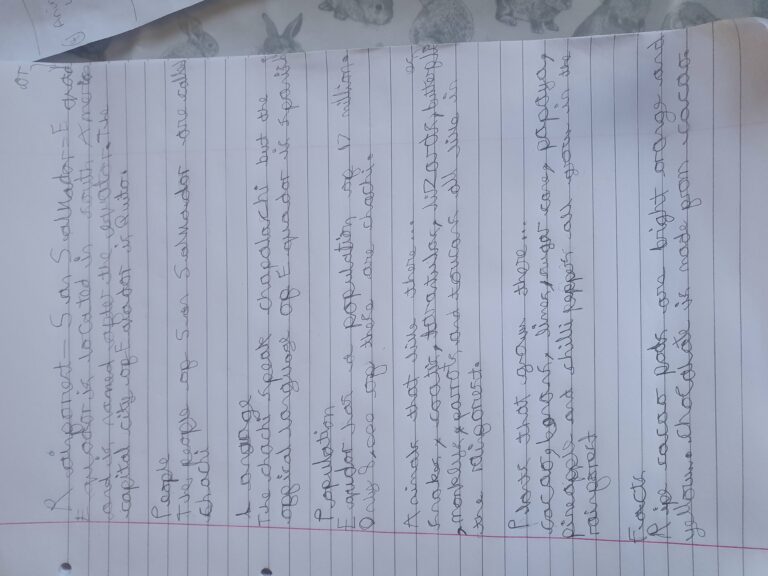 Rainforest – San Salvador – Equador
Equador is located in south America
and is named after the equator. The
capital city of Eduador is Quito.
People
The people of San Salvador are called
Chachi
Language
The chachi speak chapalachi but the
offical language of Equador is spanish
Population
Equdor has a population of 17 million.
Only 8,000 of these are chachi.
Animals that live there...
Snakes, coatis, tarantulas, lizards, butterflies
monkeys, parrots, and toucans all live in
the rainforest.
Plants that grow there...
cacao, banana, limes, sugar cane, papaya,
pineapple and chilli peppers all grow in the
rainforest
Facts
Ripe cacao pods are bright orange and
yellow. Chocolate is made from cacao.
or